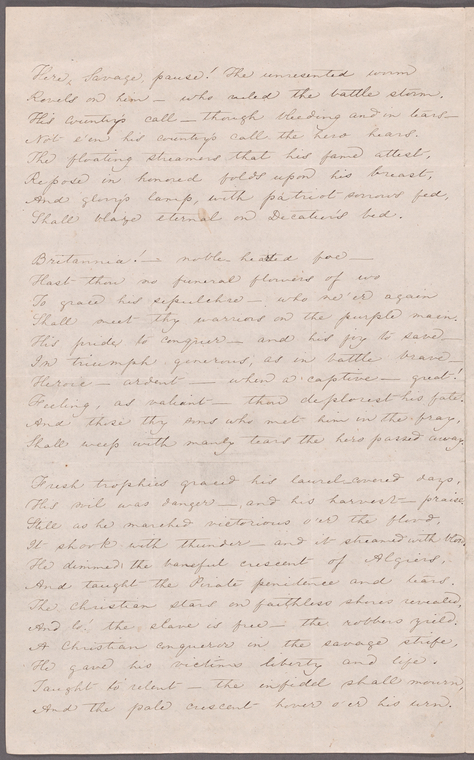 Here, Savage, pause! The unresented worm
Revels on him — who ruled the battle storm.
His country's call — though bleeding and in tears —
Not e'en his country's call the hero hears.
The floating streamers that his fame attest,
Repose in honored folds upon his breast,
And glory's lamp, with patriot sorrows fed,
Shall blaze eternal on Decatur's bed.

Britannia! — noble hearted foe —
Hast thou no funeral flowers of wo
To grace his sepulchre — who ne'er again
Shall meet thy warriors on the purple main.
His pride to conquer — and his joy to save —
In triumph generous, as in battle brave —
Heroic — ardent — when a captive — great!
Feeling, as valient — thou deplorest his fate.
And those thy sons who met him in the fray,
Shall weep with manly tears the hero passed away.

Fresh trophies graced his laurel-covered days,
His soil was danger — and his harvest — praise.
Still as he marched victorious o'er the flood,
It shook with thunder — and it streamed with blood.
He dimmed the baneful crescent of Algiers,
And taught the Pirate penitence and tears.
The Christian stars on faithless shores revealed,
And lo! the slave is free — the robbers yield.
A Christian conqueror in the savage strife,
He gave his victims liberty and life.
Taught to relent — the infidel shall mourn,
And the pale crescent hover o'er his urn.